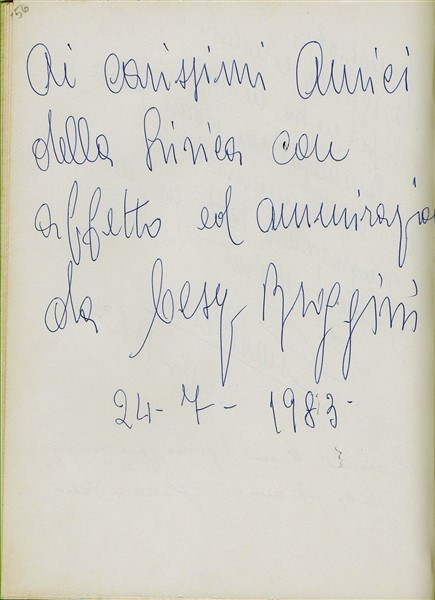 56
Ai carissimi Amici
della lirica con
affetto ed ammirazio
da Cesy Broggini
24-7-1983-